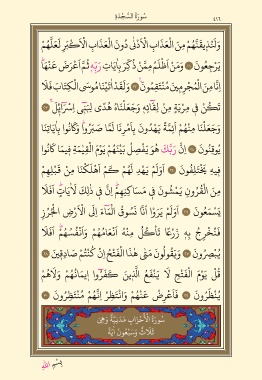 سُورَةُ السَّجْدَةِ ٤١٦
وَلَنُذِيقَنَّهُمْ مِنَ الْعَذَابِ الْاَدْنٰى دُونَ الْعَذَابِ الْاَكْبَرِ لَعَلَّهُمْ
يَرْجِعُونَ ﴿٢١﴾ وَمَنْ اَظْلَمُ مِمَّنْ ذُكِّرَ بِاٰيَاتِ رَبِّهِ ثُمَّ اَعْرَضَ عَنْهَا
اِنَّا مِنَ الْمُجْرِمِينَ مُنْتَقِمُونَ ﴿٢٢﴾ وَلَقَدْ اٰتَيْنَا مُوسَى الْكِتَابَ فَلَا
تَكُنْ فِي مِرْيَةٍ مِنْ لِقَٓائِهِ وَجَعَلْنَاهُ هُدًى لِبَنِٓي اِسْرَٓائِلَ ﴿٢٣﴾
وَجَعَلْنَا مِنْهُمْ اَئِمَّةً يَهْدُونَ بِاَمْرِنَا لَمَّا صَبَرُوا وَكَانُوا بِاٰيَاتِنَا
يُوقِنُونَ ﴿٢٤﴾ اِنَّ رَبَّكَ هُوَ يَفْصِلُ بَيْنَهُمْ يَوْمَ الْقِيٰمَةِ فِيمَا كَانُوا
فِيهِ يَخْتَلِفُونَ ﴿٢٥﴾ اَوَلَمْ يَهْدِ لَهُمْ كَمْ اَهْلَكْنَا مِنْ قَبْلِهِمْ
مِنَ الْقُرُونِ يَمْشُونَ فِي مَسَاكِنِهِمْ اِنَّ فِي ذٰلِكَ لَاٰيَاتٍ اَفَلَا
يَسْمَعُونَ ﴿٢٦﴾ اَوَلَمْ يَرَوْا اَنَّا نَسُوقُ الْمَٓاءَ اِلَى الْاَرْضِ الْجُرُزِ
فَنُخْرِجُ بِهِ زَرْعًا تَأْكُلُ مِنْهُ اَنْعَامُهُمْ وَاَنْفُسُهُمْ اَفَلَا
يُبْصِرُونَ ﴿٢٧﴾ وَيَقُولُونَ مَتٰى هٰذَا الْفَتْحُ اِنْ كُنْتُمْ صَادِقِينَ ﴿٢٨﴾
قُلْ يَوْمَ الْفَتْحِ لَا يَنْفَعُ الَّذِينَ كَفَرُٓوا اِيمَانُهُمْ وَلَا هُمْ
يُنْظَرُونَ ﴿٢٩﴾ فَاَعْرِضْ عَنْهُمْ وَانْتَظِرْ اِنَّهُمْ مُنْتَظِرُونَ ﴿٣٠﴾
سُورَةُ الْاَحْزَابِ مَدَنِيَّةٌ وَهِيَ
ثَلَاثٌ وَسَبْعُونَ اٰيَةً
بِسْمِ اللّٰهِ